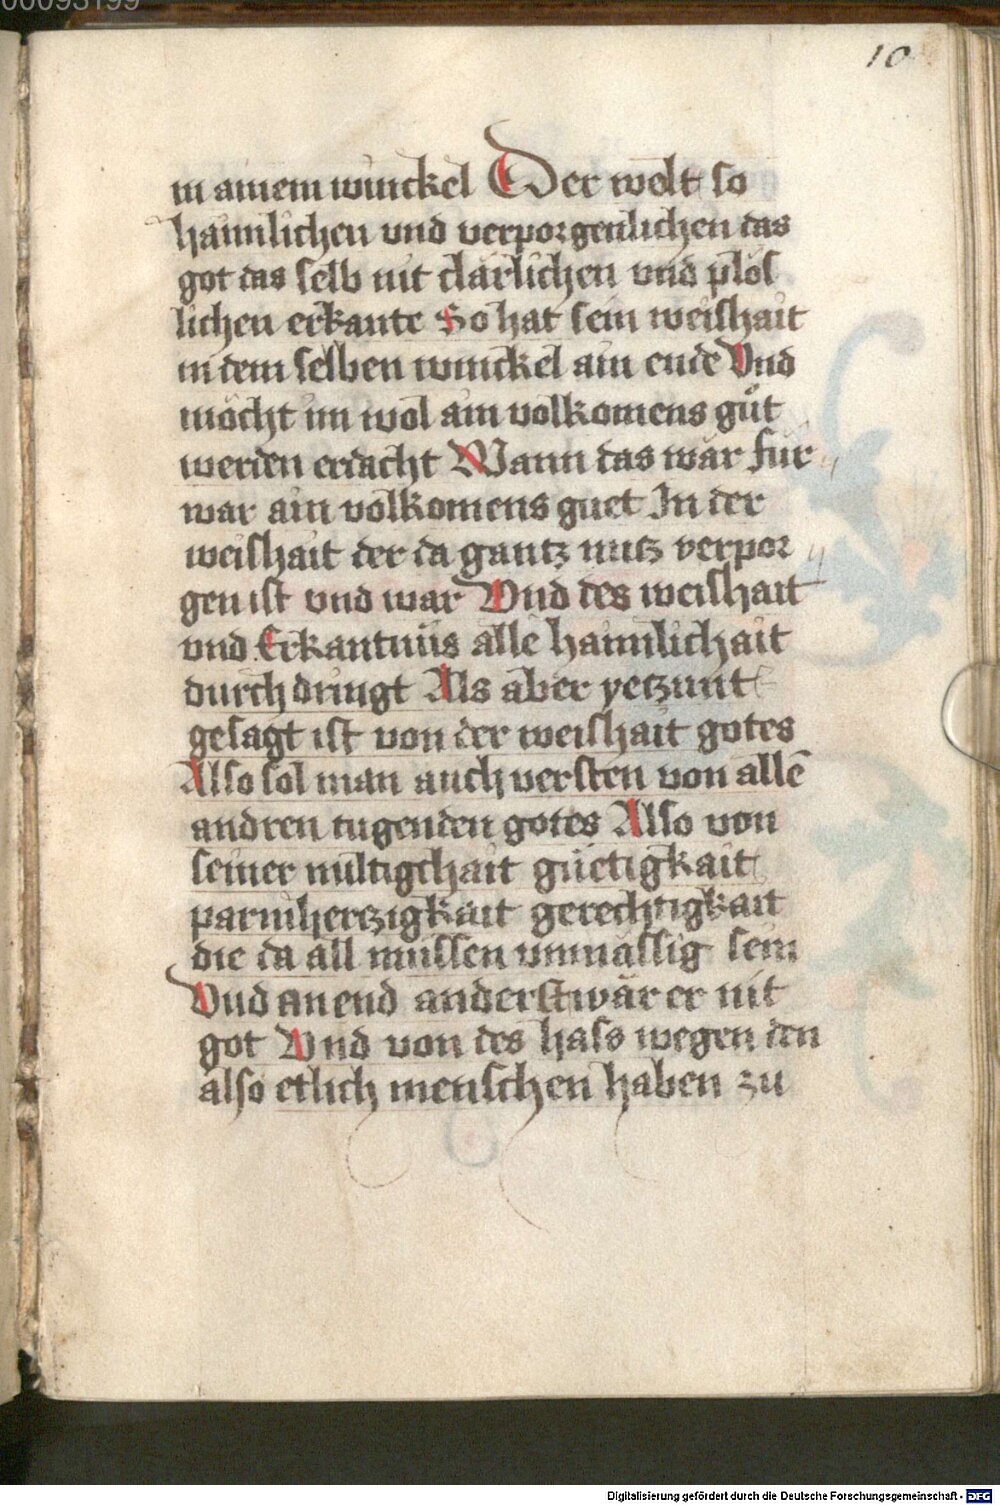 00093199
10
in ainem winckel Der welt so
haimlichen vnd verporgenlichen das
got das selb nit clärlichen vnd plös
lichen erkante So hat sein weishait
in dem selben winckel ain ende Vnd
möcht im wol ain volkomens gůt
werden erdacht Wann das wär für
war ain volkomens guet In der
weishait der da gantz nutz verpor
gen ist vnd war Vnd des weishait
vnd Erkantnüs alle haimlichait
durch dringt Als aber yetzunt
gesagt ist von der weishait gotes
Also sol man auch versten von allē
andren tugenden gotes Also von
seiner miltigchait güetigkait
parmherczigkait gerechtigkait
die da all müssen vnmässig sein
Vnd an end anderst wär er nit
got Vnd von des hass wegen den
also etlich menschen haben zu
Digitalisierung gefördert durch die Deutsche Forschungsgemeinschaft - DFG